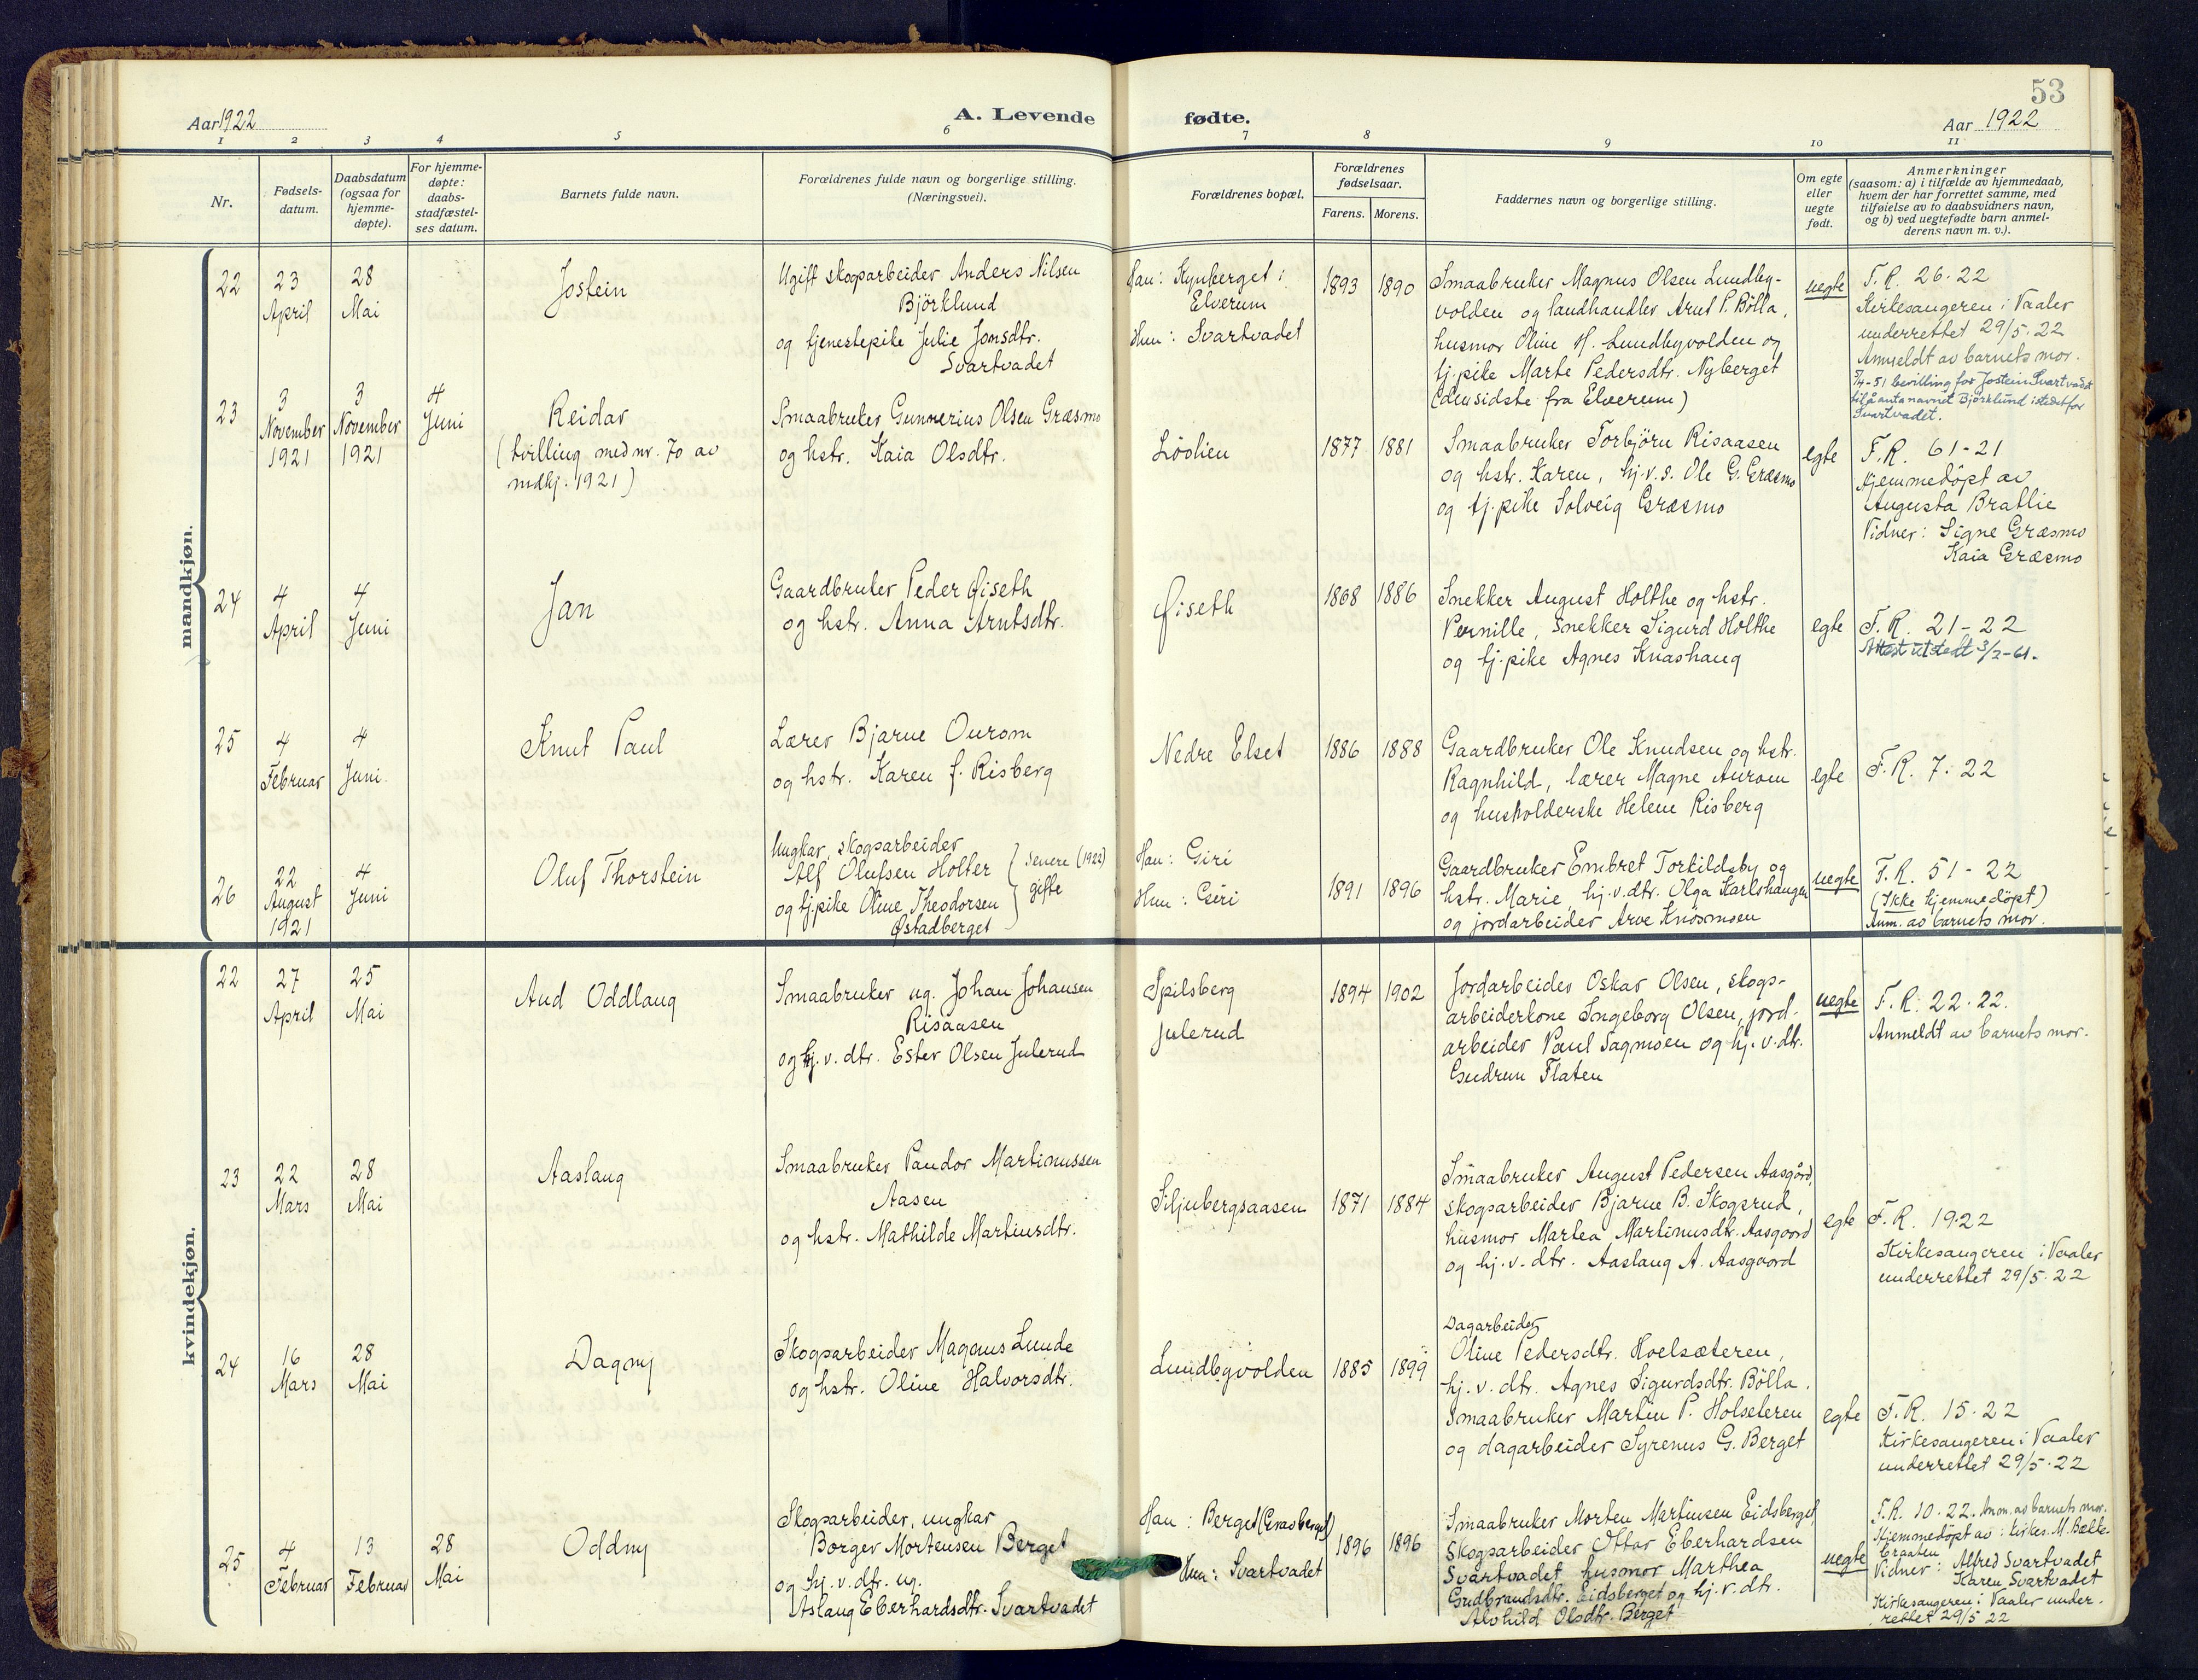 53
Aar 1922
A. Levende fødte.
Aar 1922
1 2 3 4 5 6 7 8 9 10 11
Nr.
Fødsels-
datum.
Daabsdatum
(ogsaa for
hjemme-
døpte).
For hjemme-
døpte:
daabs-
stadfæstel-
ses datum.
Barnets fulde navn.
Forældrenes fulde navn og borgerlige stilling.
(Næringsvei).
Forældrenes bopæl.
Forældrenes
fødselsaar.
Farens. Morens.
Faddernes navn og borgerlige stilling.
Om egte
eller
uegte
født.
Anmerkninger
(saasom: a) i tilfælde av hjemmedaab,
hvem der har forrettet samme, med
tilføielse av to daabsvidners navn,
og b) ved uegtefødte barn anmel-
derens navn m. v.).
mandkjøn.
22
23
April
28
Mai
Jostein
Ugift skogsarbeider Anders Nilsen
Björklund
og tjenestepike Julie Jonsdtr.
Svartvadet
Han: Kynberget i
Elverum
Hun: Svartvadet
1893 1890
Smaabruker Magnus Olsen Lundby-
volden og landhandler Arnt P. Bölla,
husmor Oline H. Lundbyvolden og
tj.pike Marte Pedersdtr. Nyberget
(den sidste fra Elverum)
uegte
F.R. 26-22
Kirkesangeren i Vaaler
underrettet 29/5-22
Anmeldt av barnets mor.
5/4-51 bevilling for Jostein Svartvadet
til å anta navnet Björklund istedetfor
Svartvadet.
23
3
November
1921
3
November
1921
4
Juni
Reidar
(tvilling med nr. 70 av
mdkj. 1921)
Smaabruker Gunnerius Olsen Græsmo
og hstr. Kaia Olsdtr.
Löolien
1877 1881
Smaabruker Torbjörn Risaasen
og hstr. Karen, hj.v.s. Ole G. Græsmo
og tj.pike Solveig Græsmo
egte
F.R. 61-21
Hjemmedöpt av
Augusta Bratlie
Vidner: Signe Græsmo
Kaia Græsmo
24
4
April
4
Juni
Jan
Gaardbruker Peder Øiseth
og hstr. Anna Arntsdtr.
Øiseth
1868 1886
Snekker August Holthe og hstr.
Pernille, Snekker Sigurd Holthe
og tj.pike Agnes Knashaug
egte
F.R. 21-22
Attest utstedt 3/2-61.
25
4
Februar
4
Juni.
Knut Paul
Lærer Bjarne Ourom
og hstr. Karen f. Risberg
Nedre Elset
1886 1888
Gaardbruker Ole Knudsen og hstr.
Ragnhild, lærer Magne Aurom
og husholderske Helene Risberg
egte
F.R. 7-22
26
22
August
1921
4
Juni
Oluf Thorstein
Ungkar, skogsarbeider
Alf Olufsen Holter
og tj.pike Oline Theodorsen
Østadberget
senere (1922)
gifte
Han: Giri
Hun: Giri
1891 1896
Gaardbruker Embret Torkildsby og
hstr. Marie, hj.v.dtr. Olga Karlshaugen
og jordarbeider Arve Knosmoen
uegte
F.R. 51-22
(Ikke hjemmedöpt)
Anm. av barnets mor.
kvindekjøn.
22
27
April
25
Mai
Aud Oddlaug
Smaabruker ug. Johan Johansen
Risaasen
og hj.v.dtr. Ester Olsen Julerud
Spilsberg
Julerud
1894 1902
Jordarbeider Oskar Olsen, skogs-
arbeiderkone Ingeborg Olsen, jord-
arbeider Paul Sagmoen og hj.v.dtr.
Gudrun Flaten
uegte
F.R. 22-22.
Anmeldt av barnets mor.
23
22
Mars
28
Mai
Aaslaug
Smaabruker Pandor Martinussen
Aasen
og hstr. Mathilde Martinsdtr.
Siljubergsaasen
1871 1884
Smaabruker August Pedersen Aasgård,
skogsarbeider Bjarne B. Skogsrud,
husmor Martea Martinusdtr. Aasgaard
og hj.v.dtr. Aaslaug A. Aasgaard
egte
F.R. 19-22
Kirkesangeren i Vaaler
underrettet 29/5-22
24
16
Mars
28
Mai
Dagny
Skogsarbeider Magnus Lunde
og hstr. Oline Halvorsdtr.
Lundbyvolden
1885 1899
Dagarbeider
Oline Pedersdtr. Hoelsæteren,
hj.v.dtr. Agnes Sigurdsdtr. Bölla.
Smaabruker Martin P. Holseteren
og dagarbeider Syrenus G. Berget
egte
F.R. 15-22
Kirkesangeren i Vaaler
underrettet 29/5-22
25
4
Februar
13
Februar
28
Mai
Oddny
Skogsarbeider, ungkar
Borger Mortensen Berget
og hj.v.dtr. ug.
Aslaug Eberhardsdtr. Svartvadet
Han: Berget (Gravberget)
Hun: Svartvadet
1896 1896
Smaabruker Morten Martinsen Eidsberget,
Skogsarbeider Ottar Eberhardsen
Svartvadet husmor Marthea
Gudbrandsdtr. Eidsberget og hj.v.dtr.
Alvhild Olsdtr. Berget
uegte
F.R. 10-22. Anm. av barnets mor.
Hjemmedöpt av: kirkes. M. Bælte-
Graaten
Vidner: Alfred Svartvadet
Karen Svartvadet
Kirkesangeren i Vaaler under-
rettet 29/5 22